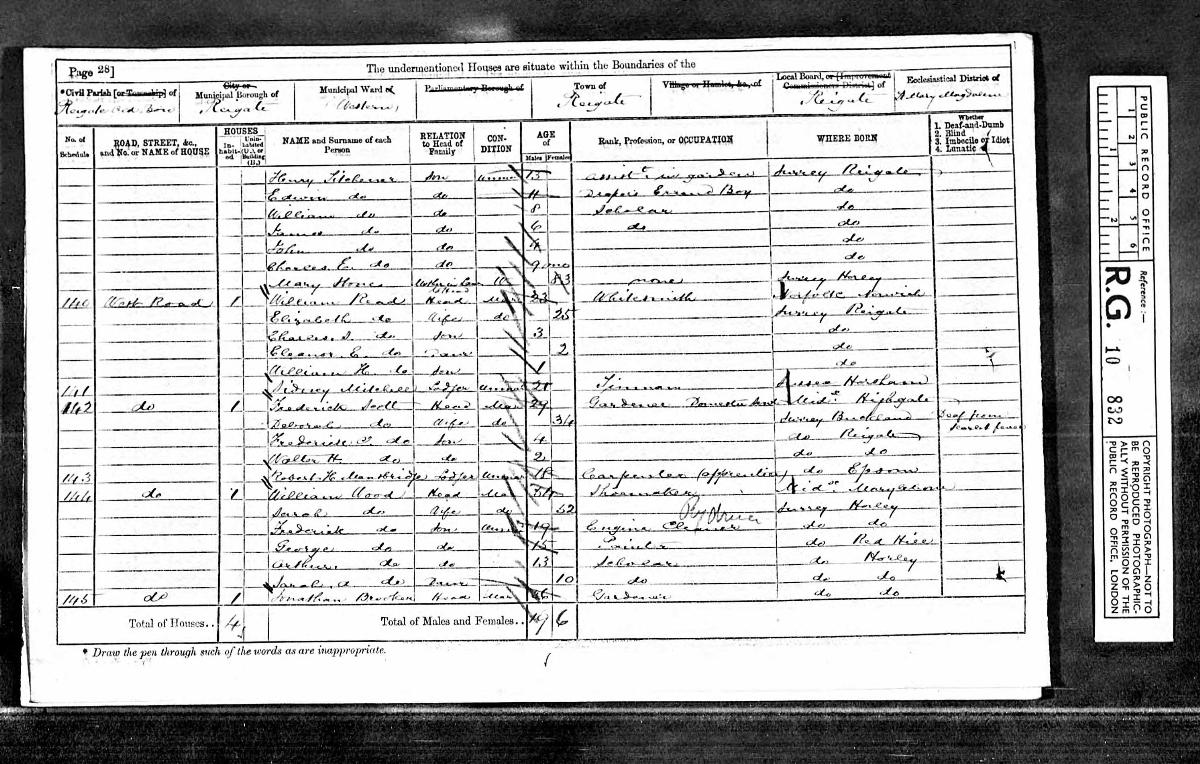 Page 28]
The undermentioned Houses are situate within the Boundaries of the
*Civil Parish [or Township] of
City or Municipal Borough of
Municipal Ward of
Parliamentary Borough of
Town of
Village or Hamlet, &c., of
Local Board, or [Improvement Commissioners District] of
Ecclesiastical District of
Reigate Reigate Western Reigate Reigate St Mary Magdalene
No. of Schedule
ROAD, STREET, &c., and No. or NAME of HOUSE
HOUSES
Inhabited
Uninhabited (U.), or Building (B.)
NAME and Surname of each Person
RELATION to Head of Family
CONDITION
AGE of
Males Females
Rank, Profession, or OCCUPATION
WHERE BORN
Whether
1. Deaf-and-Dumb
2. Blind
3. Imbecile or Idiot
4. Lunatic
Henry Son Unmar 13 assist in garden Surrey Reigate
Edwin do do 11 Errand Boy do
William do do 8 Scholar do
James do do 6 do do
John do do 4 do
Charles E. do do 9 mo do
Mary W none Surrey Horley
140 West Road 1 William Read Head Mar 23 Whitesmith Norfolk Norwich
Elizabeth do Wife do 25 Surrey Reigate
Charles do Son 3 do
Eleanor E. do Daur 2 do
William H. do Son 1 do
141 Sidney Mitchell Lodger Unmar 21 Tinman Sussex Horsham
142 do 1 Frederick Scott Head Mar 29 Gardener Domestic Serv Midx Highgate
Deborah do Wife do 34 Surrey Buckland Deaf from Scarlet fever
Frederick do Son 4 do Reigate
Walter H. do do 2 do do
143 Robert H. Mantbridge Lodger Unmar 18 Carpenter (apprentice) do Epsom
144 do 1 William Wood Head Mar 54 Shoemaker Midx Marylebone
Sarah do Wife do 52 Surrey Horley
Frederick do Son Unmar 19 Engine Cleaner do do
George do do 15 do Red Hill
Arthur do do 13 Scholar do Horley
Sarah A. do Daur 10 do do do
145 do 1 Jonathan Head Mar 66 Gardener do do
Total of Houses.. 4
Total of Males and Females.. 19 6
* Draw the pen through such of the words as are inappropriate.
PUBLIC RECORD OFFICE
1 2 3 4 5 6
1 2
Reference:—
R.G. 10 832
COPYRIGHT PHOTOGRAPH—NOT TO BE REPRODUCED PHOTOGRAPHICALLY WITHOUT PERMISSION OF THE PUBLIC RECORD OFFICE, LONDON